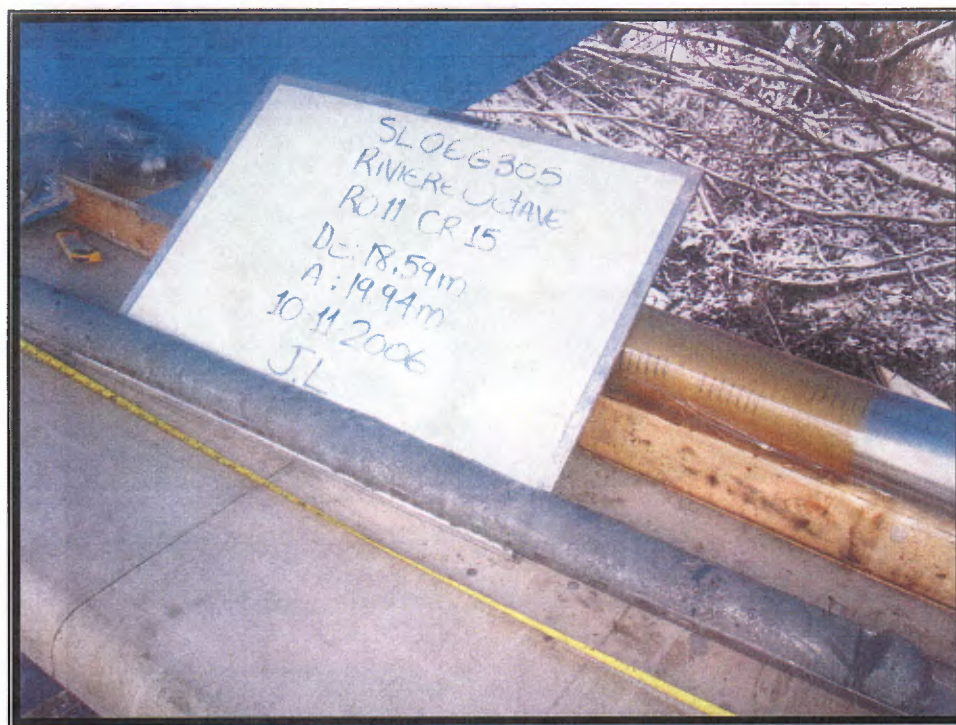 SLOEG305
RIVIERE OCTAVE
RO11 CR15
De: 18.59m
A: 19.94m
10-11-2006
J.L